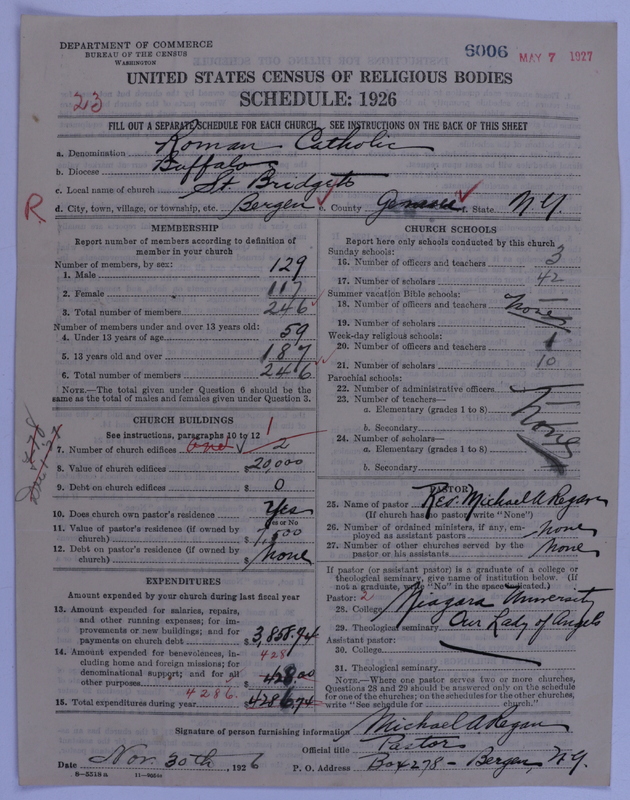 DEPARTMENT OF COMMERCE
BUREAU OF THE CENSUS
WASHINGTON
6006 MAY 7 1927
UNITED STATES CENSUS OF RELIGIOUS BODIES
SCHEDULE: 1926
23
FILL OUT A SEPARATE SCHEDULE FOR EACH CHURCH. SEE INSTRUCTIONS ON THE BACK OF THIS SHEET
a. Denomination Roman Catholic
b. Diocese Buffalo
c. Local name of church St. Bridgets
R
d. City, town, village, or township, etc. Bergen e. County Genesee f. State N.Y.
MEMBERSHIP
Report number of members according to definition of
member in your church
Number of members, by sex:
1. Male 129
2. Female 117
3. Total number of members 246
Number of members under and over 13 years old:
4. Under 13 years of age 59
5. 13 years old and over 187
6. Total number of members 246
NOTE.—The total given under Question 6 should be the
same as the total of males and females given under Question 3.
CHURCH BUILDINGS
See instructions, paragraphs 10 to 12 1
7. Number of church edifices one 2
8. Value of church edifices $20,000
9. Debt on church edifices $ 0
10. Does church own pastor's residence Yes
Yes or No
11. Value of pastor's residence (if owned by
church) $7,500
12. Debt on pastor's residence (if owned by
church) $ None
EXPENDITURES
Amount expended by your church during last fiscal year
13. Amount expended for salaries, repairs,
and other running expenses; for im-
provements or new buildings; and for
payments on church debt $3,858.74
14. Amount expended for benevolences, in- 428
cluding home and foreign missions; for
denominational support; and for all
other purposes $ 428.00
4286.
15. Total expenditures during year $4286.74
CHURCH SCHOOLS
Report here only schools conducted by this church
Sunday schools:
16. Number of officers and teachers 3
17. Number of scholars 42
Summer vacation Bible schools:
18. Number of officers and teachers —
19. Number of scholars None
Week-day religious schools:
20. Number of officers and teachers 1
21. Number of scholars 10
Parochial schools:
22. Number of administrative officers
23. Number of teachers—
a. Elementary (grades 1 to 8)
b. Secondary None
24. Number of scholars—
a. Elementary (grades 1 to 8)
b. Secondary
PASTOR
25. Name of pastor Rev. Michael A. Regan
(If church has no pastor, write "None")
26. Number of ordained ministers, if any, em-
ployed as assistant pastors None
27. Number of other churches served by the
pastor or his assistants None
If pastor (or assistant pastor) is a graduate of a college or
theological seminary, give name of institution below. (If
not a graduate, write "No" in the space indicated.)
Pastor: 2
28. College Niagara University
29. Theological seminary Our Lady of Angels
Assistant pastor:
30. College
31. Theological seminary
NOTE.—Where one pastor serves two or more churches,
Questions 28 and 29 should be answered only on the schedule
for one of the churches; on the schedules for the other churches,
write "See schedule for church."
Signature of person furnishing information Michael A. Regan
Official title Pastor
Date Nov. 30th, 1926 P. O. Address Box 278 - Bergen, N.Y.
8—5518a